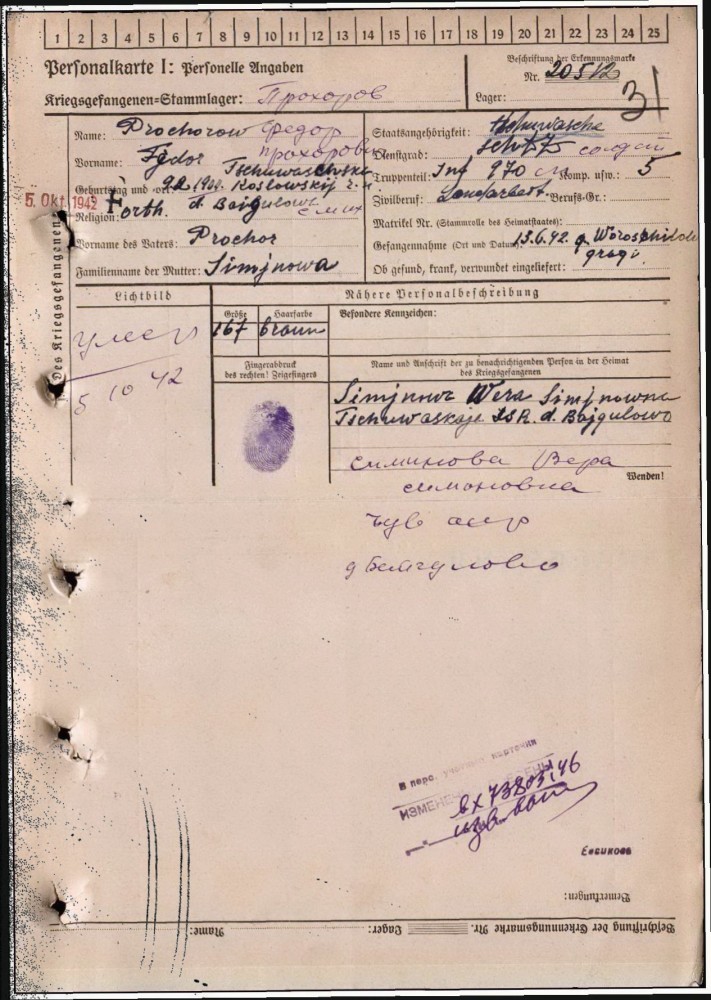 1 2 3 4 5 6 7 8 9 10 11 12 13 14 15 16 17 18 19 20 21 22 23 24 25
Personalkarte I: Personelle Angaben
Beschriftung der Erkennungsmarke
Nr. 20512
Kriegsgefangenen=Stammlager: Прохоров
Lager:
Name: Prochorow Федор
Прохорович
Vorname: Fjodor
Geburtstag und -ort:
Koslowskij
d. Bajgulowo
5. Okt. 1942
Religion: Orth.
Vorname des Vaters: Prochor
Familienname der Mutter: Simjnowa
Staatsangehörigkeit: Tschuwasche
Dienstgrad: солдат
Truppenteil: Inf 970 Komp. usw.: 5
Zivilberuf: Landarbeit. Berufs-Gr.:
Matrikel Nr. (Stammrolle des Heimatstaates):
Gefangennahme (Ort und Datum): 13.6.42. g. Woroschilow
grag.
Ob gesund, krank, verwundet eingeliefert:
Des Kriegsgefangenen
Lichtbild
умер
5 10 42
Nähere Personalbeschreibung
Größe
167
Haarfarbe
braun
Besondere Kennzeichen:
Fingerabdruck
des rechten! Zeigefingers
Name und Anschrift der zu benachrichtigenden Person in der Heimat
des Kriegsgefangenen
Simjnowa Wera Simjnowna
Tschuwaskaje SSR. d. Bajgulowo
Wenden!
симинова Вера
симоновна
чув асср
д Байгулово
В перс. учетную карточку
ИЗМЕНЕНИЯ ВНЕСЕНЫ
вх 73803, 46
Евсикова
Bemerkungen:
Beschriftung der Erkennungsmarke Nr. Lager: Name: